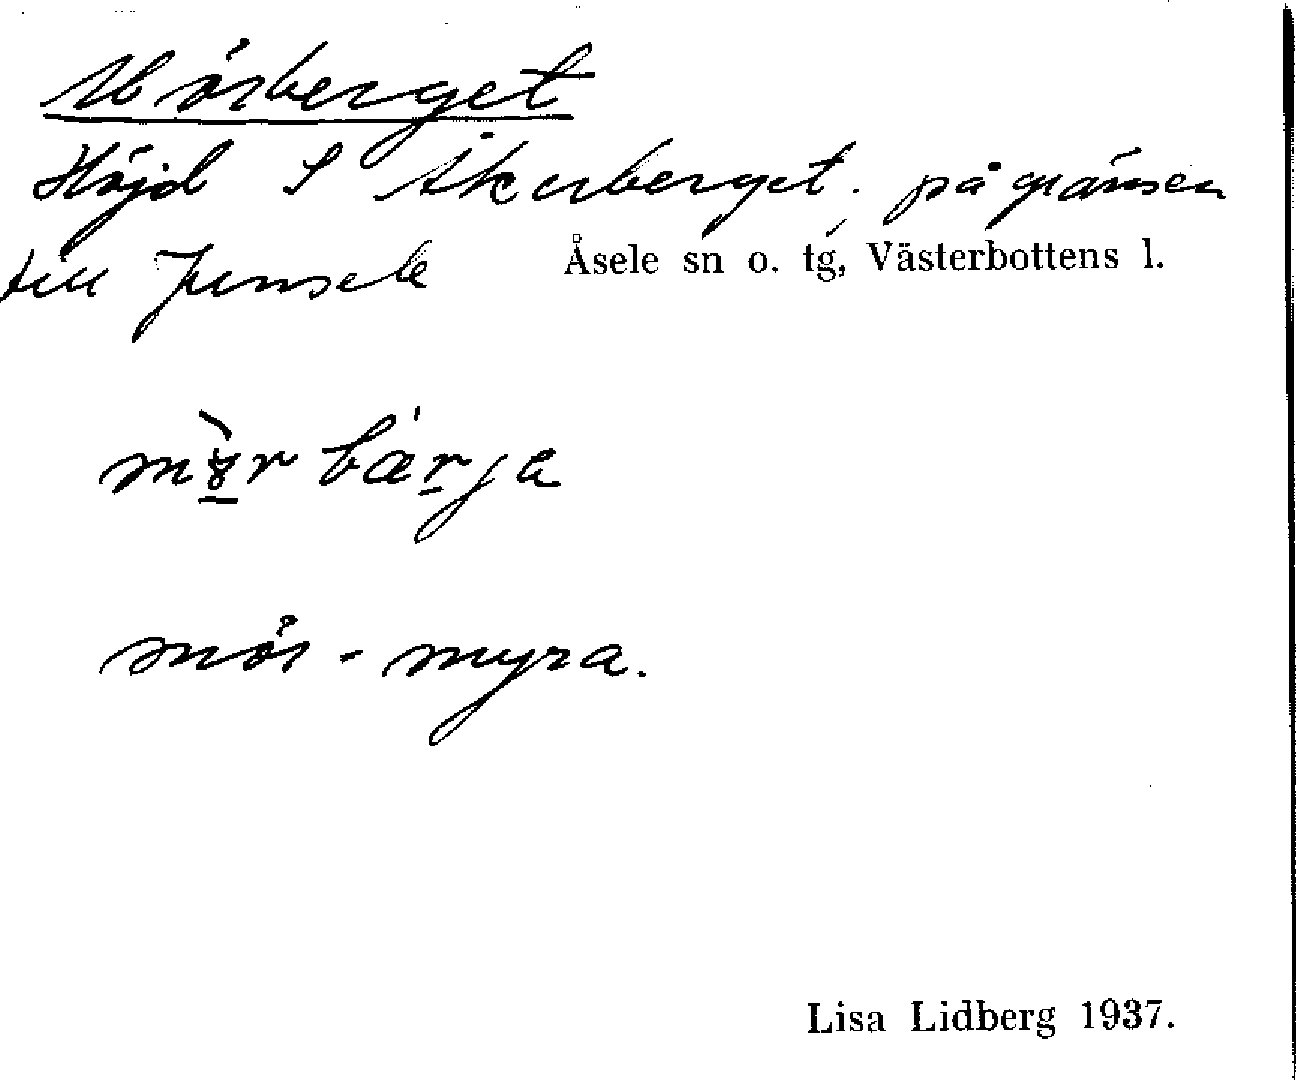 Mörberget
Höjd S Åkerberget. på gränsen
till Junsele Åsele sn o. tg, Västerbottens l.
bærja
mör - myra.
Lisa Lidberg 1937.